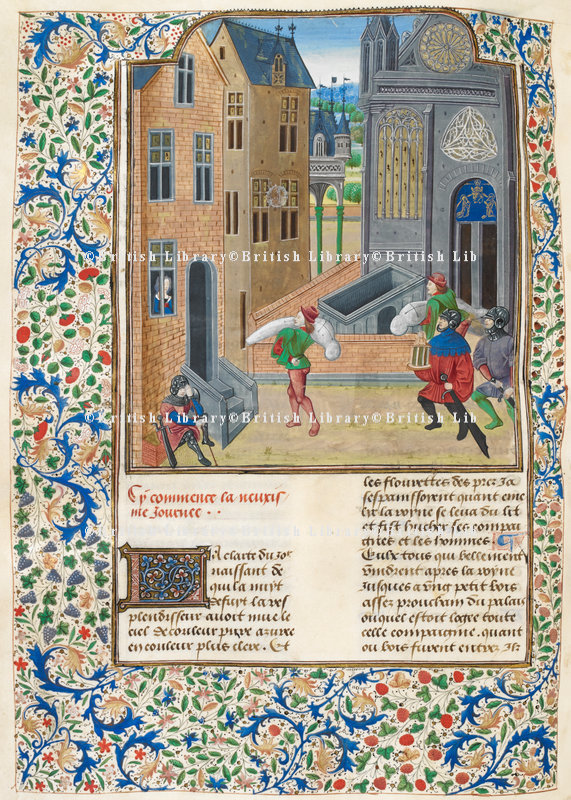 ©British Library©British Library©British Lib
©British Library©British Library©British Lib
©British Library©British Library©British Lib
Cy commence la neufis
me Journee ··
La clarte du Jor
naissant de
qui la nuyt
refuit la res
plendisseur avoit mue le
ciel de couleur pieρε azuree
en couleur plus clere. Et
les flourettes des prez Ja
sespanissoient quant eme
lie la royne se leua du lit
et fist hucher ses compai
gnes et les hommes.
Eulx tous qui bellement
vindrent apres la royne
Jusques a ung petit bois
assez prouchain du palais
ouquel estoit logee toute
celle compaignie. quant
ou bois furent entrez Ilz